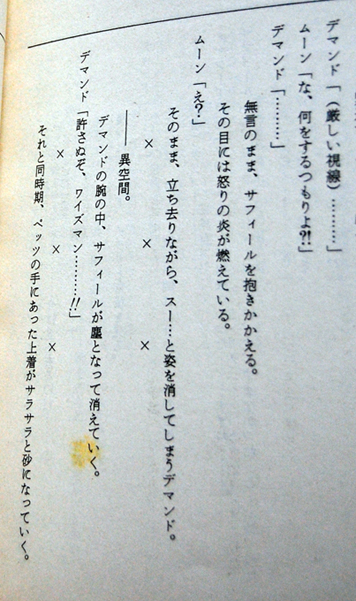 デマンド「(厳しい視線)…………」
ムーン「な、何をするつもりよ?!」
デマンド「…………」
無言のまま、サフィールを抱きかかえる。
その目には怒りの炎が燃えている。
ムーン「え?」
そのまま、立ち去りながら、スー…と姿を消してしまうデマンド。
× × ×
――異空間。
デマンドの腕の中、サフィールが塵となって消えていく。
デマンド「許さぬぞ、ワイズマン…………!!」
× × ×
それと同時期、ペッツの手にあった上着がサラサラと砂になっていく。